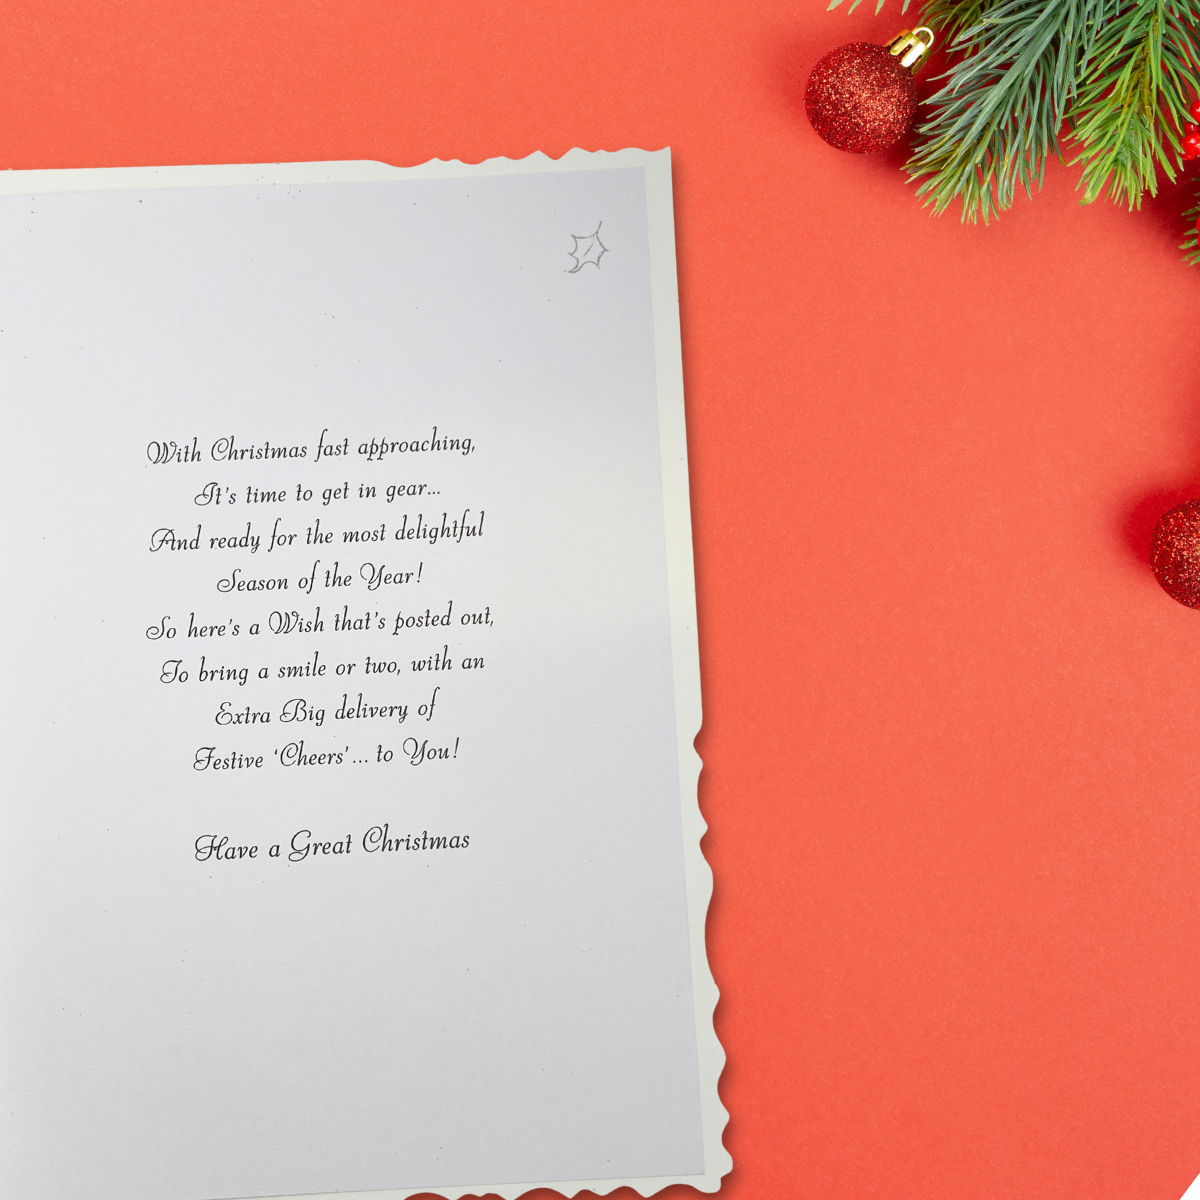 With Christmas fast approaching,
It's time to get in gear...
And ready for the most delightful
Season of the Year!
So here's a Wish that's posted out,
To bring a smile or two, with an
Extra Big delivery of
Festive ‘Cheers’... to You!
Have a Great Christmas